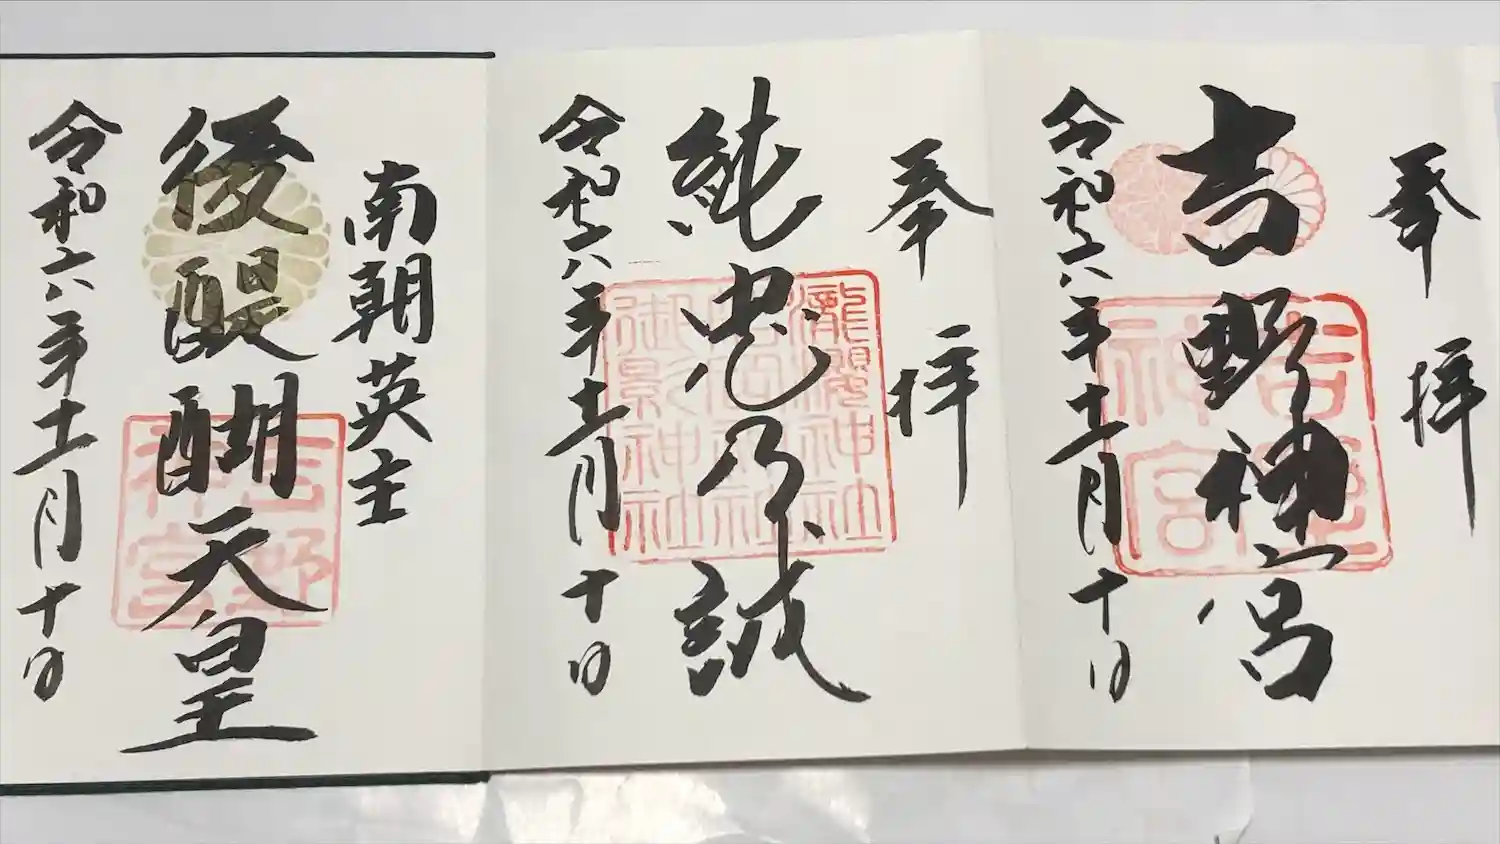 奉拝
吉野神宮
吉野神宮
令和六年十一月十日
奉拝
純忠乃誠
瀧櫻神社
御影神社
令和六年十一月十日
南朝英主
後醍醐天皇
吉野神宮
令和六年十一月十日